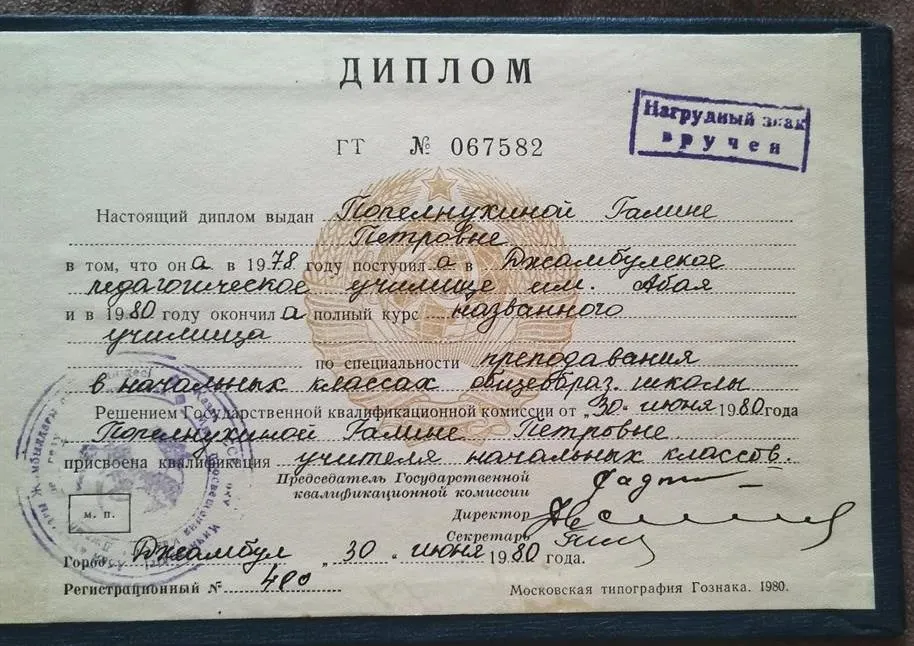 ДИПЛОМ
Нагрудный знак
вручен
ГТ № 067582
Настоящий диплом выдан Попелнухиной Галине
Петровне
в том, что она в 1978 году поступила в Джамбулское
педагогическое училище им. Абая
и в 1980 году окончила полный курс названного
училища
по специальности преподавания
в начальных классах общеобраз. школы
Решением Государственной квалификационной комиссии от „30“ июня 1980 года
Попелнухиной Галине Петровне
присвоена квалификация учителя начальных классов.
Председатель Государственной
квалификационной комиссии
Директор
Секретарь
м. п.
Город Джамбул „30“ июня 1980 года.
Регистрационный № 480
Московская типография Гознака. 1980.